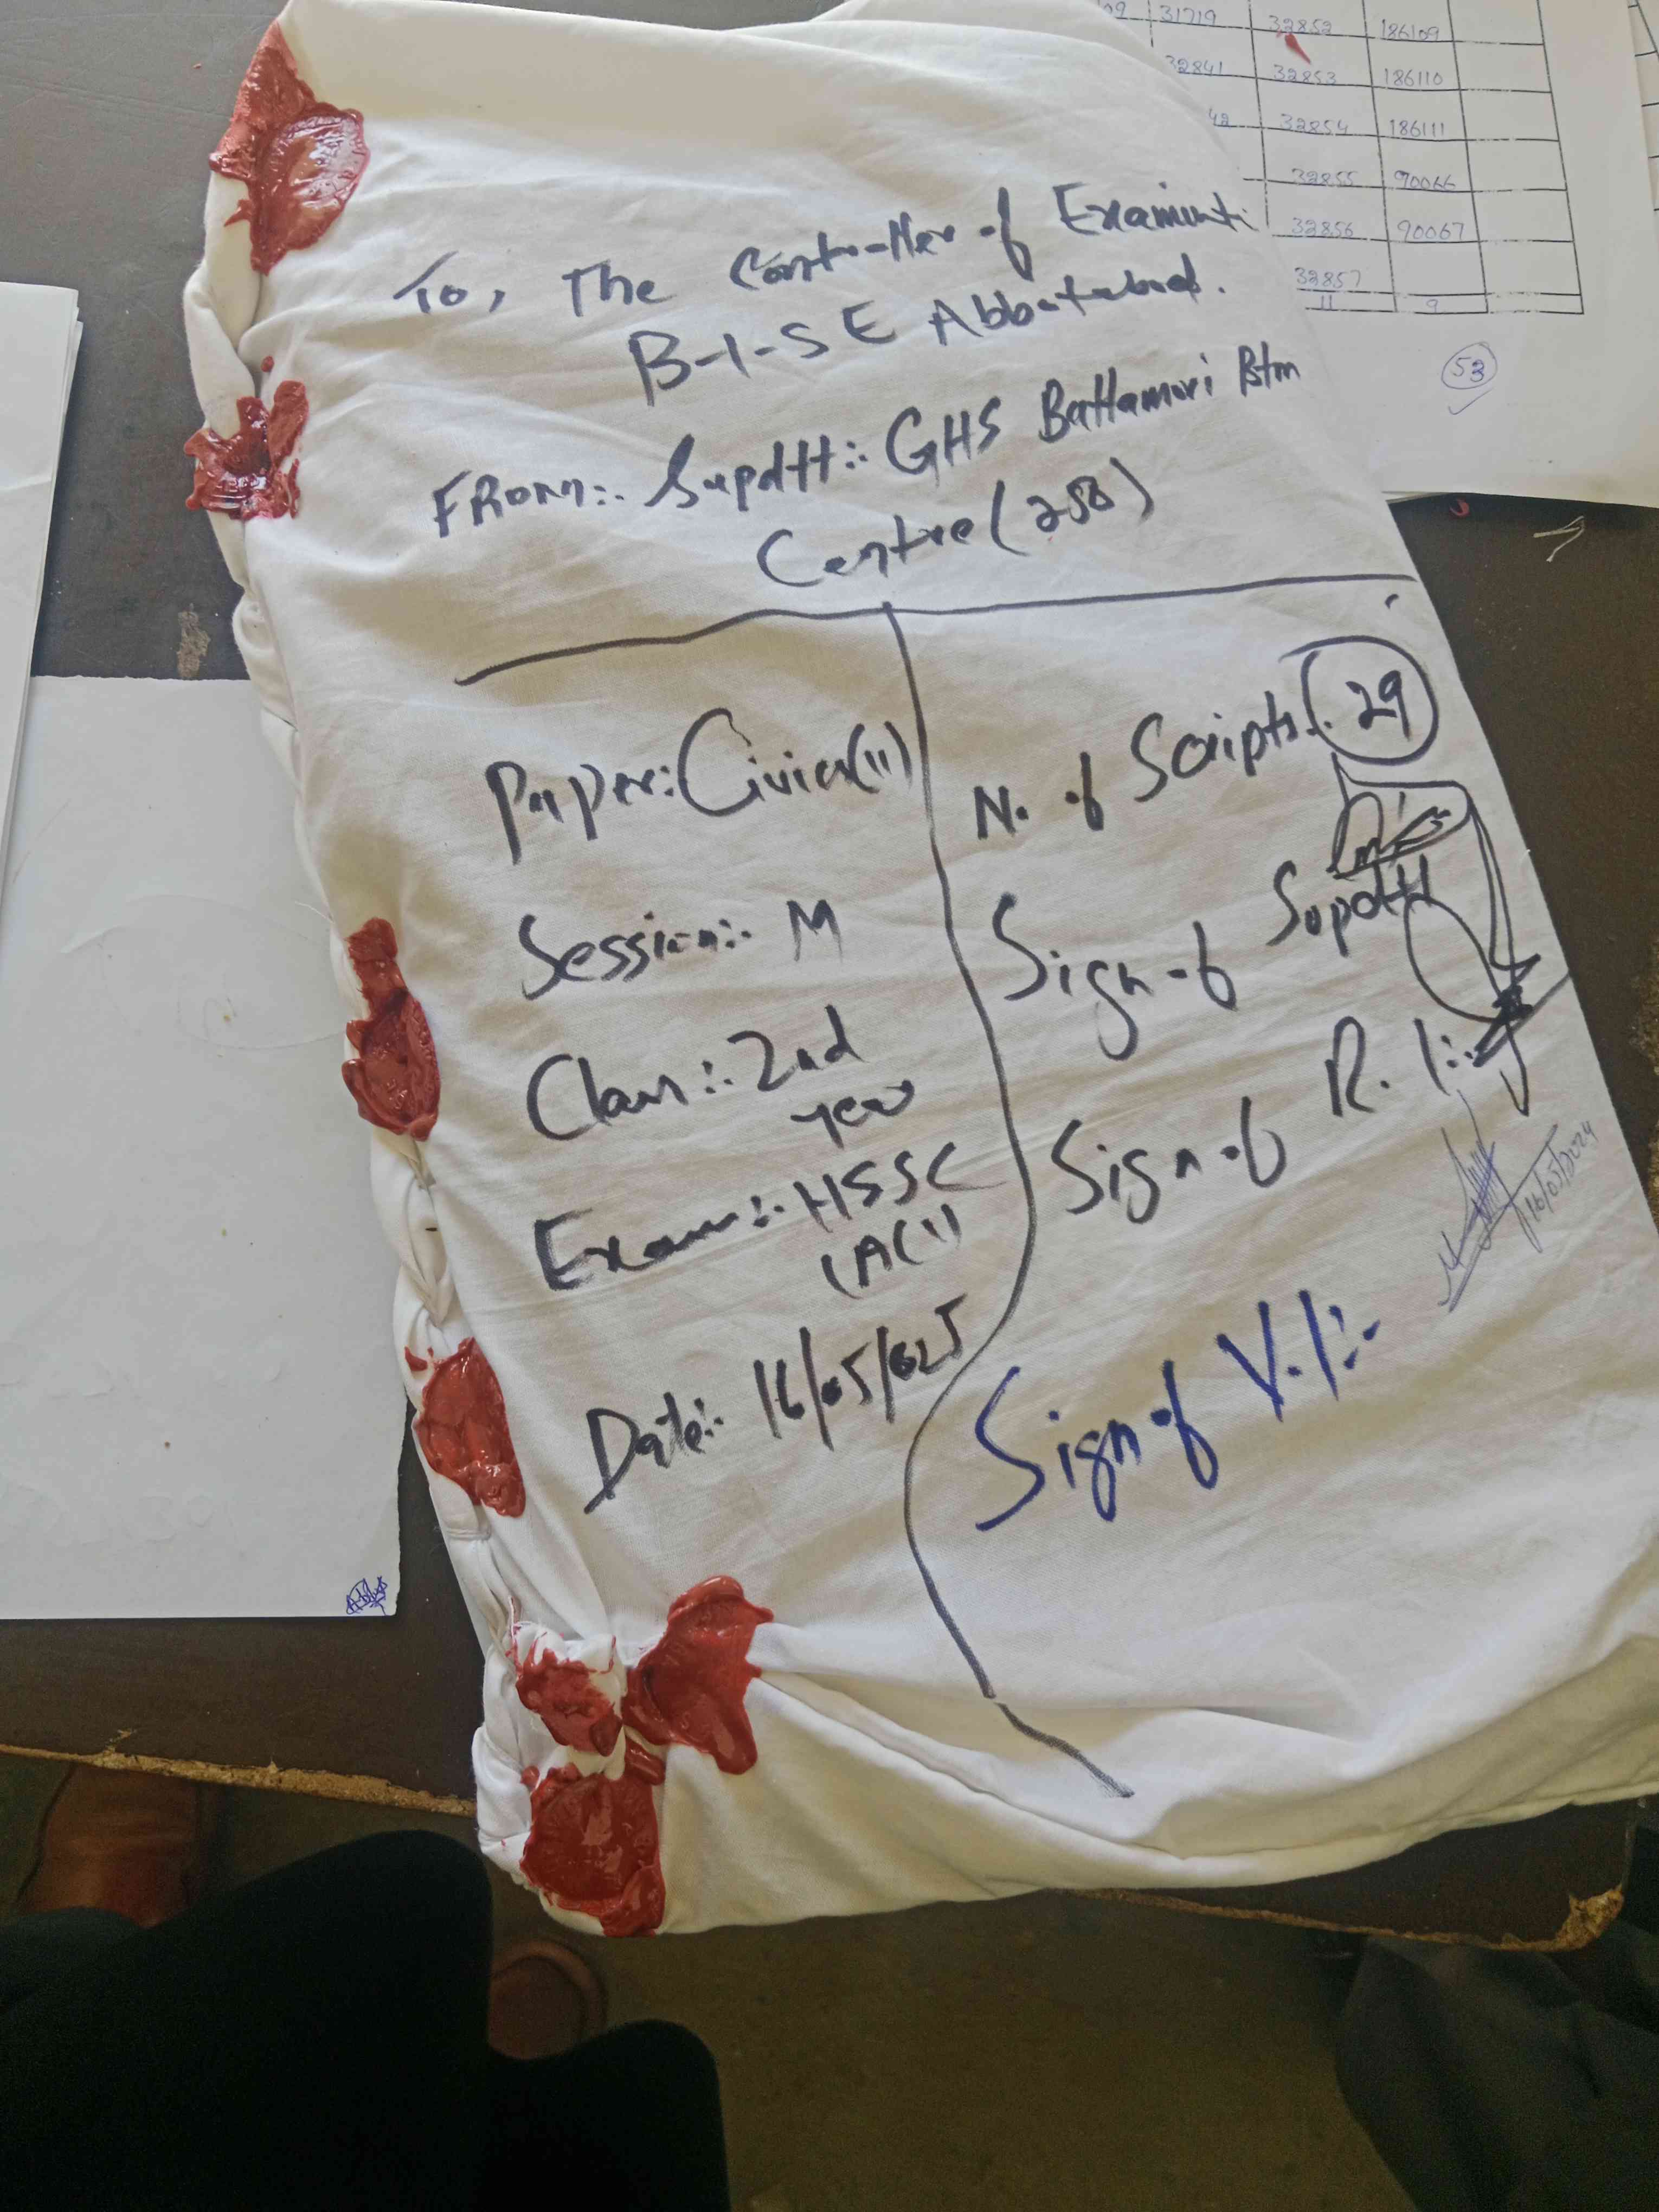 To, The Controller of Examinati:
B-I-SE Abbottabad.
FROM:. Supdtt:. GHS Battamori Btm
Centre (258)
Paper: Civics(II)
Session:. M
Class:. 2nd
year
Exam:. HSSC
(A(II)
Date:. 16/05/025
No. of Scripts. 29
Sign of Supdtt
Sign of R.I:.
16/05/2024
Sign of V.I:-
09 31719 32852 186109
32841 32853 186110
42 32854 186111
32855 90066
32856 90067
32857
11 9
53